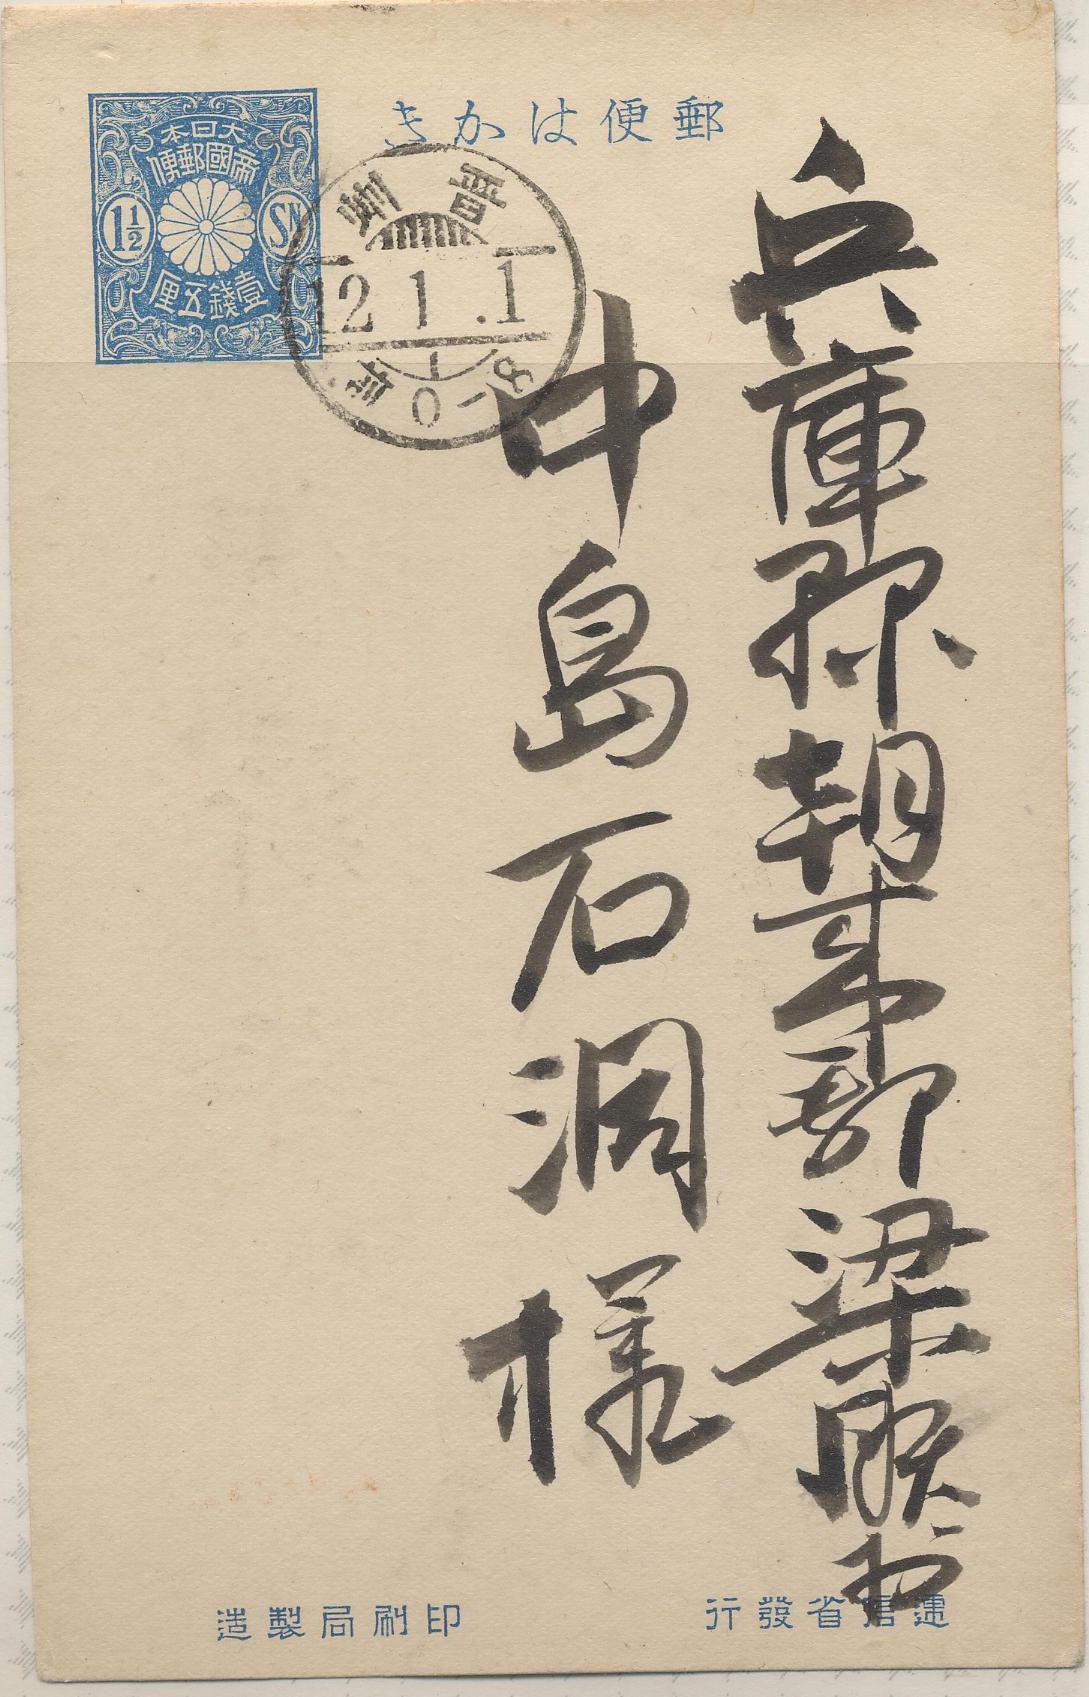 郵便はかき
大日本
帝國郵便
1½
SN
壹錢五厘
12.1.1
0-8
兵庫縣朝来郡梁瀬村
中島石洞様
遞信省發行
印刷局製造